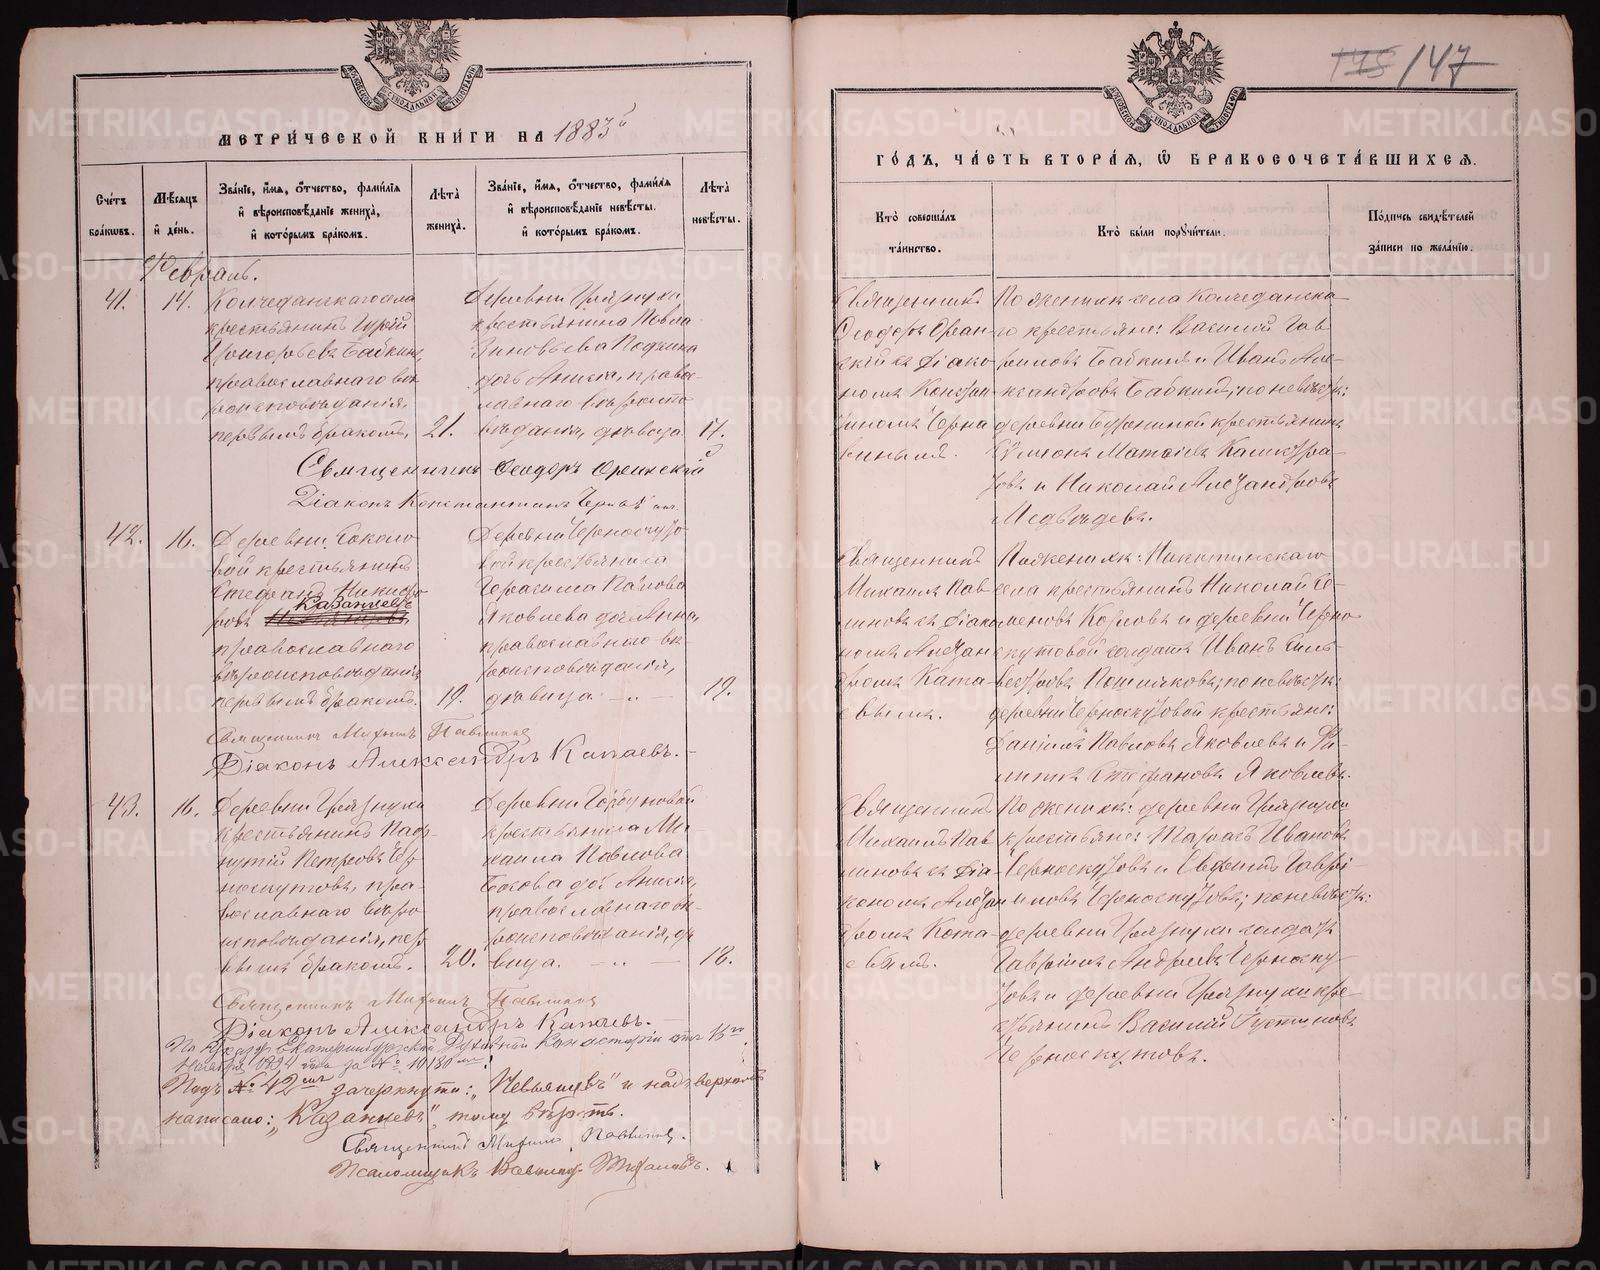 МЕТРИЧЕСКОЙ КНИГИ НА 1883й
Счетъ браковъ.
Мѣсяцъ и день.
Званіе, имя, отчество, фамилія и вѣроисповѣданіе жениха, и которымъ бракомъ.
Лѣта жениха.
Званіе, имя, отчество, фамилія и вѣроисповѣданіе невѣсты. и которымъ бракомъ.
Лѣта невѣсты.
Февраль.
41.
14.
Колчеданскаго села
крестьянинъ
Григорьевъ Бабкинъ,
православнаго вѣ
роисповѣданія,
первымъ бракомъ.
21.
Деревни Грязнухи
крестьянина Павла
Зиновьева
дочь Анисія, право
славнаго вѣроиспо
вѣданія, дѣвица
17.
Священникъ Ѳеодоръ
Діаконъ Константинъ
42.
16.
Деревни Соколо
вой крестьянинъ
Стефанъ Никифо
ровъ Казанцевъ
православнаго
вѣроисповѣданія
первымъ бракомъ.
19.
Деревни Черноскуто
вой крестьянина
Герасима Павлова
Яковлева дочь Анна,
православнаго вѣ
роисповѣданія,
дѣвица
19.
Священникъ Михаилъ Павлиновъ
Діаконъ Александръ Катаевъ.
43.
16.
Деревни Грязнухи
крестьянинъ Паф
нутій Петровъ Чер
носкутовъ, пра
вославнаго вѣро
исповѣданія, пер
вымъ бракомъ.
20.
Деревни Горбуновой
крестьянина Ми
хаила Павлова
дочь Анисія,
православнаго вѣ
роисповѣданія, дѣ
вица.
18.
Священникъ Михаилъ Павлиновъ
Діаконъ Александръ Катаевъ.
По Указу Екатеринбургской Духовной Консисторіи отъ
за № 10180
Подъ № 42 зачеркнуто: „Невьянцевъ" и надъ верхомъ
написано: „Казанцевъ", тому вѣрить.
Священникъ Михаилъ Павлиновъ.
Псаломщикъ
148 147
ГОДЪ, ЧАСТЬ ВТОРАЯ, Ѿ БРАКОСОЧЕТАВШИХСЯ.
Кто совершалъ таинство.
Кто были поручители.
Подпись свидѣтелей записи по желанію.
Священникъ
Ѳеодоръ
съ діако
номъ Констан
тиномъ Черна
винымъ.
По женихѣ села Колчеданска
го крестьяне: Василій Гав
риловъ Бабкинъ и Иванъ Але
ксандровъ Бабкинъ; по невѣстѣ:
деревни крестьянинъ
Матвіевъ
и Николай Александровъ
Медвѣдевъ.
Священникъ
Михаилъ Пав
линовъ съ діако
номъ Алексан
дромъ Ката
евымъ.
По женихѣ: Никитинскаго
села крестьянинъ Николай Се
меновъ Козловъ и деревни Черно
скутовой солдатъ Иванъ Силь
вестровъ по невѣстѣ:
деревни Черноскутовой крестьяне:
Даніилъ Павловъ Яковлевъ и Фи
липпъ Стефановъ Яковлевъ.
Священникъ
Михаилъ Пав
линовъ съ діа
кономъ Алексан
дромъ Ката
евымъ.
По женихѣ: деревни Грязнухи
крестьяне: Тарасъ Ивановъ
Черноскутовъ и Евфимъ Гаврі
иловъ Черноскутовъ; по невѣстѣ:
деревни Грязнухи солдатъ
Гавріилъ Андреевъ Черноску
товъ и деревни Грязнухи кре
стьянинъ Василій Іустиновъ
Черноскутовъ.
METRIKI.GASO-URAL.RU